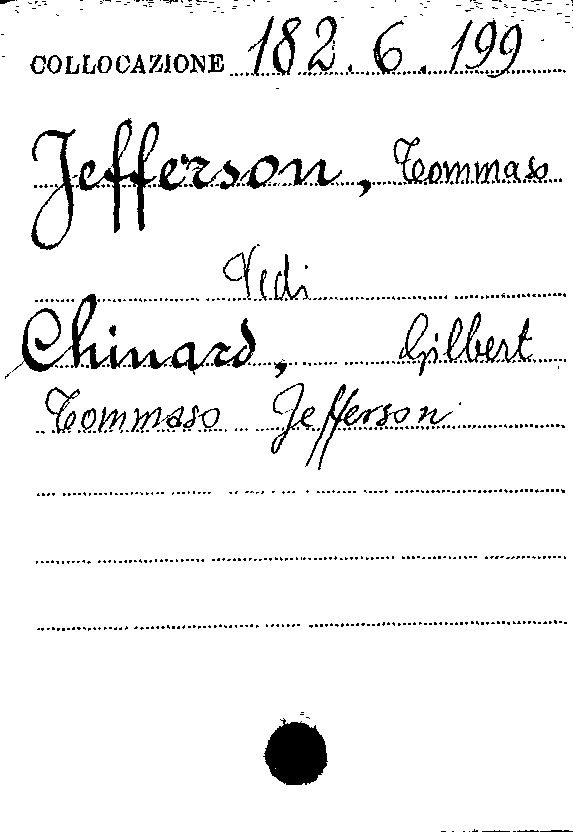 COLLOCAZIONE 182.6.199
Jefferson, Tommaso
Vedi
Chinard, Gilbert
Tommaso Jefferson